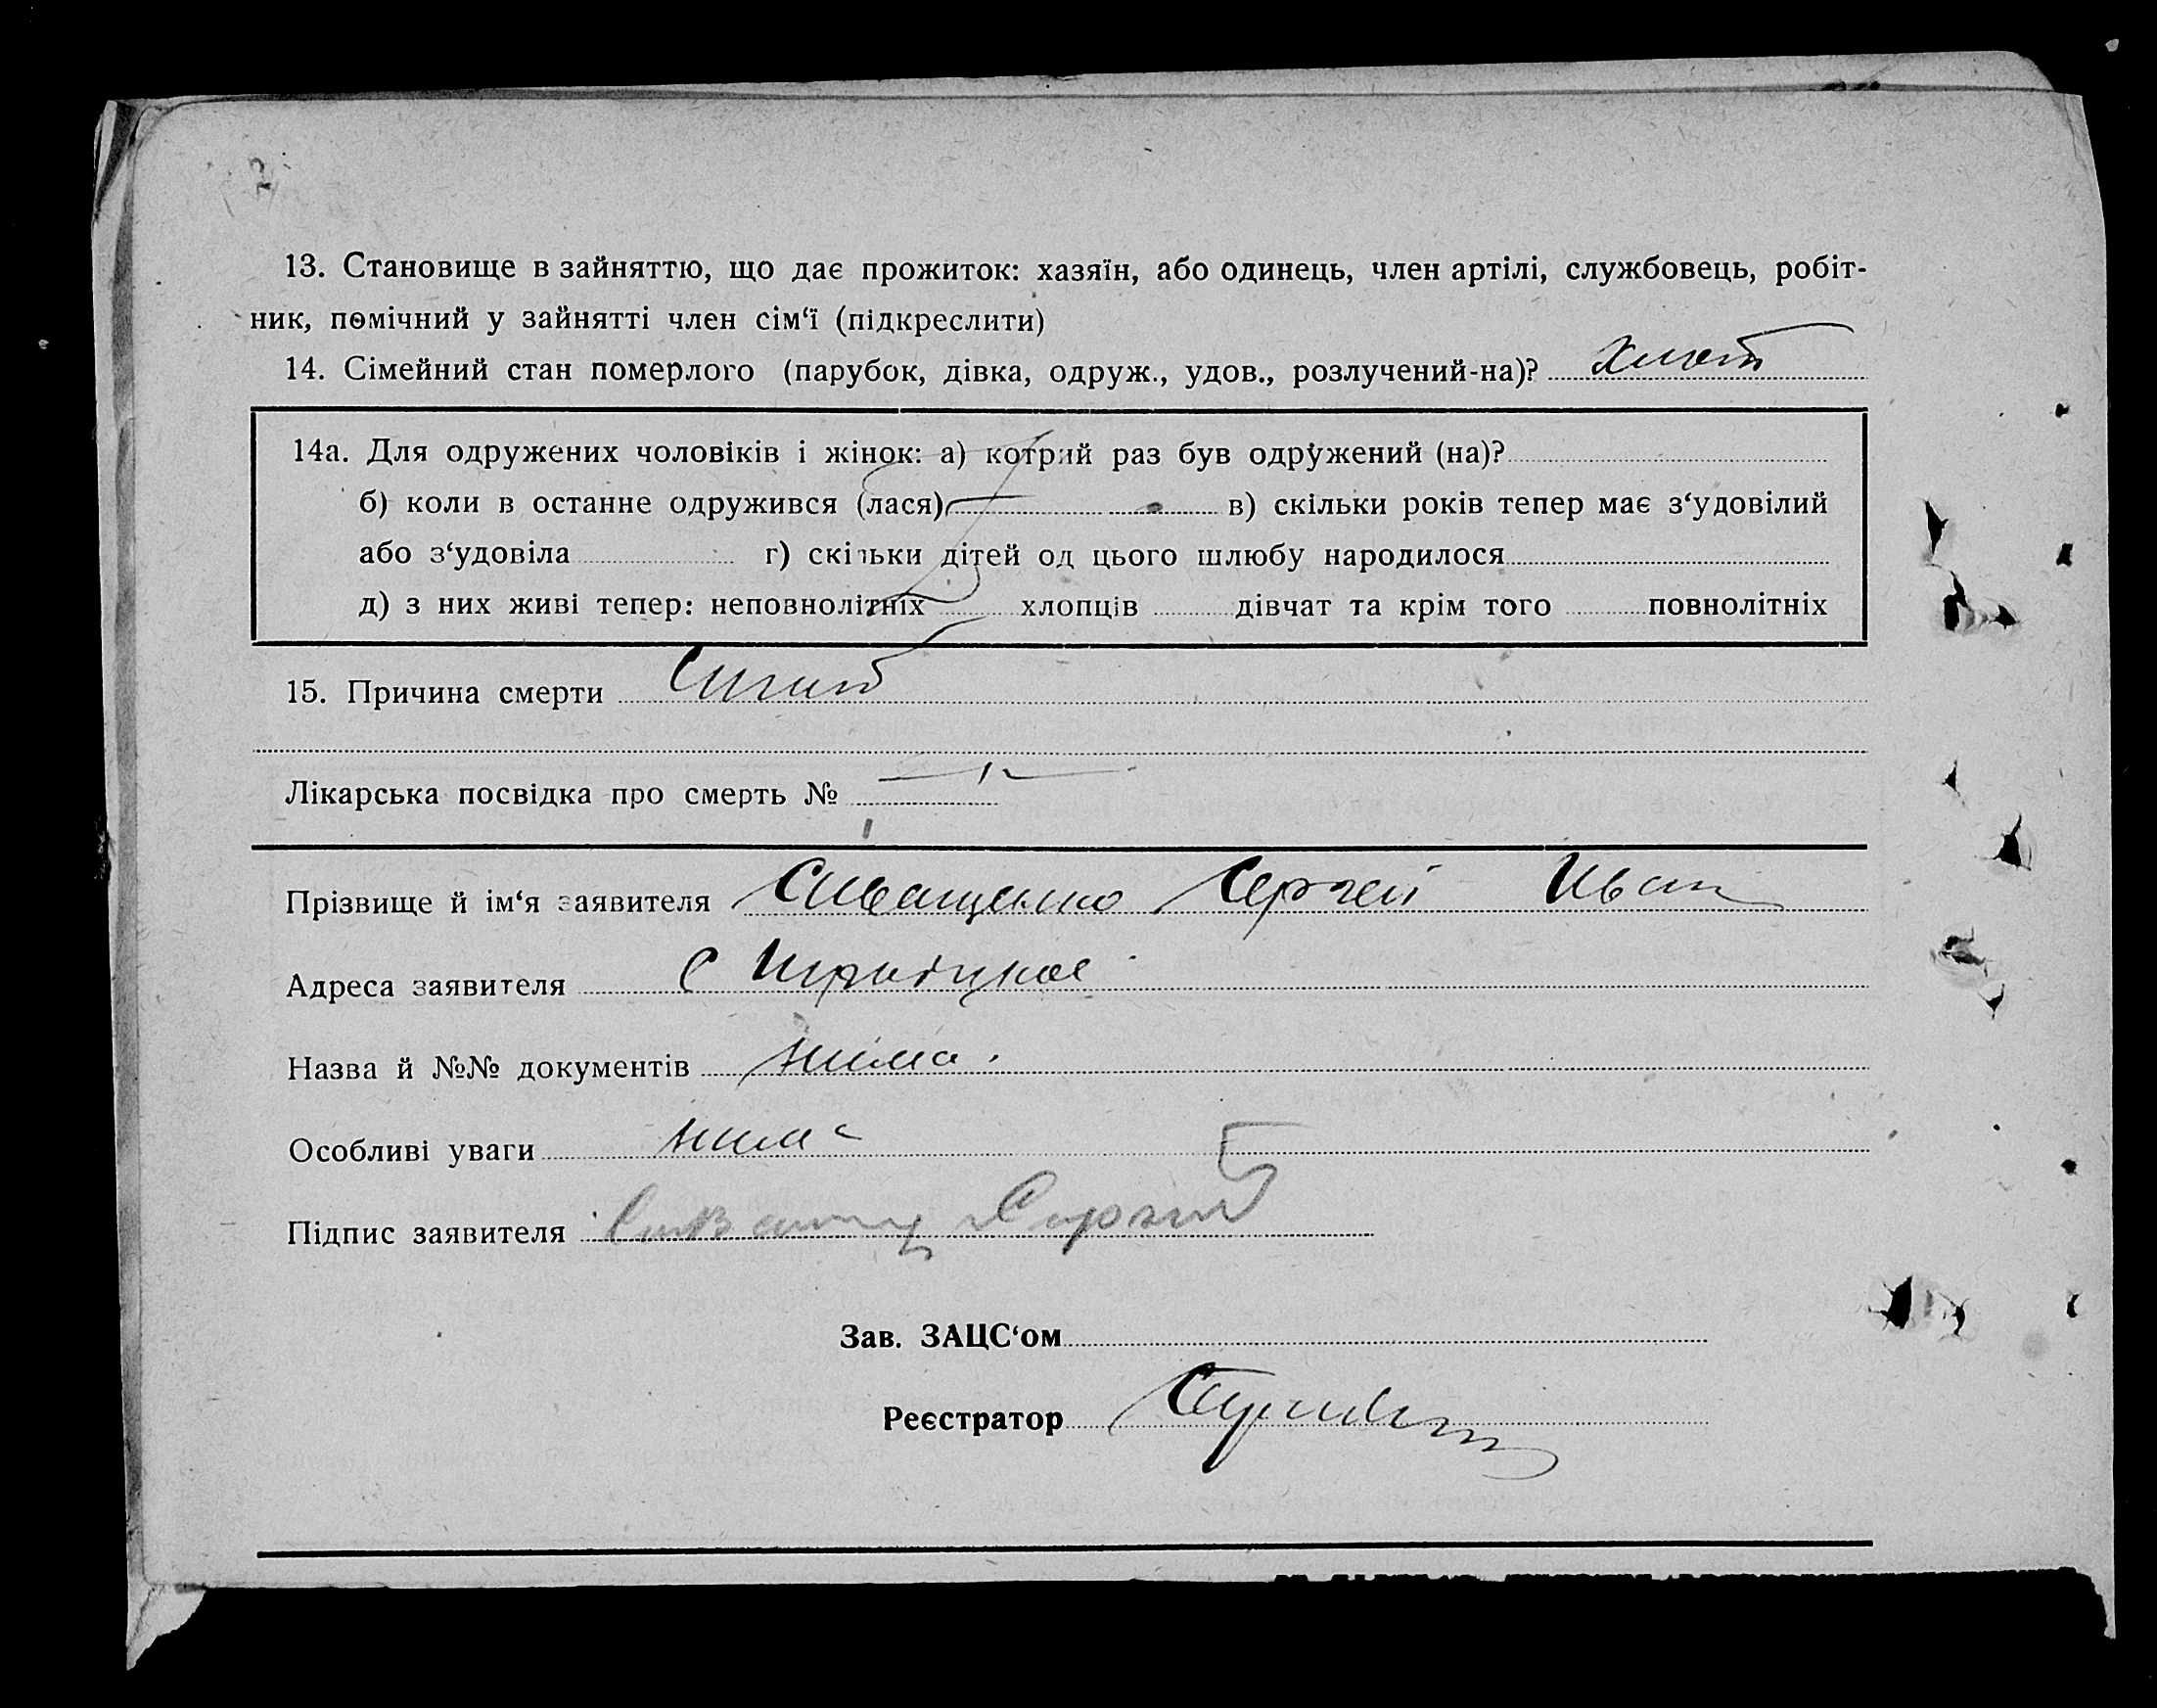 13. Становище в зайняттю, що дає прожиток: хазяїн, або одинець, член артілі, службовець, робіт-
ник, помічний у зайнятті член сім‘ї (підкреслити)
14. Сімейний стан померлого (парубок, дівка, одруж., удов., розлучений-на)?
14а. Для одружених чоловіків і жінок: а) котрий раз був одружений (на)?
б) коли в останне одружився (лася) в) скільки років тепер має з‘удовілий
або з‘удовіла г) скільки дітей од цього шлюбу народилося
д) з них живі тепер: неповнолітніх хлопців дівчат та крім того повнолітніх
15. Причина смерти
Лікарська посвідка про смерть №
Прізвище й ім‘я заявителя Сиващенко Сергей Иван
Адреса заявителя с
Назва й №№ документів нима.
Особливі уваги нима
Підпис заявителя
Зав. ЗАЦС‘ом
Реєстратор